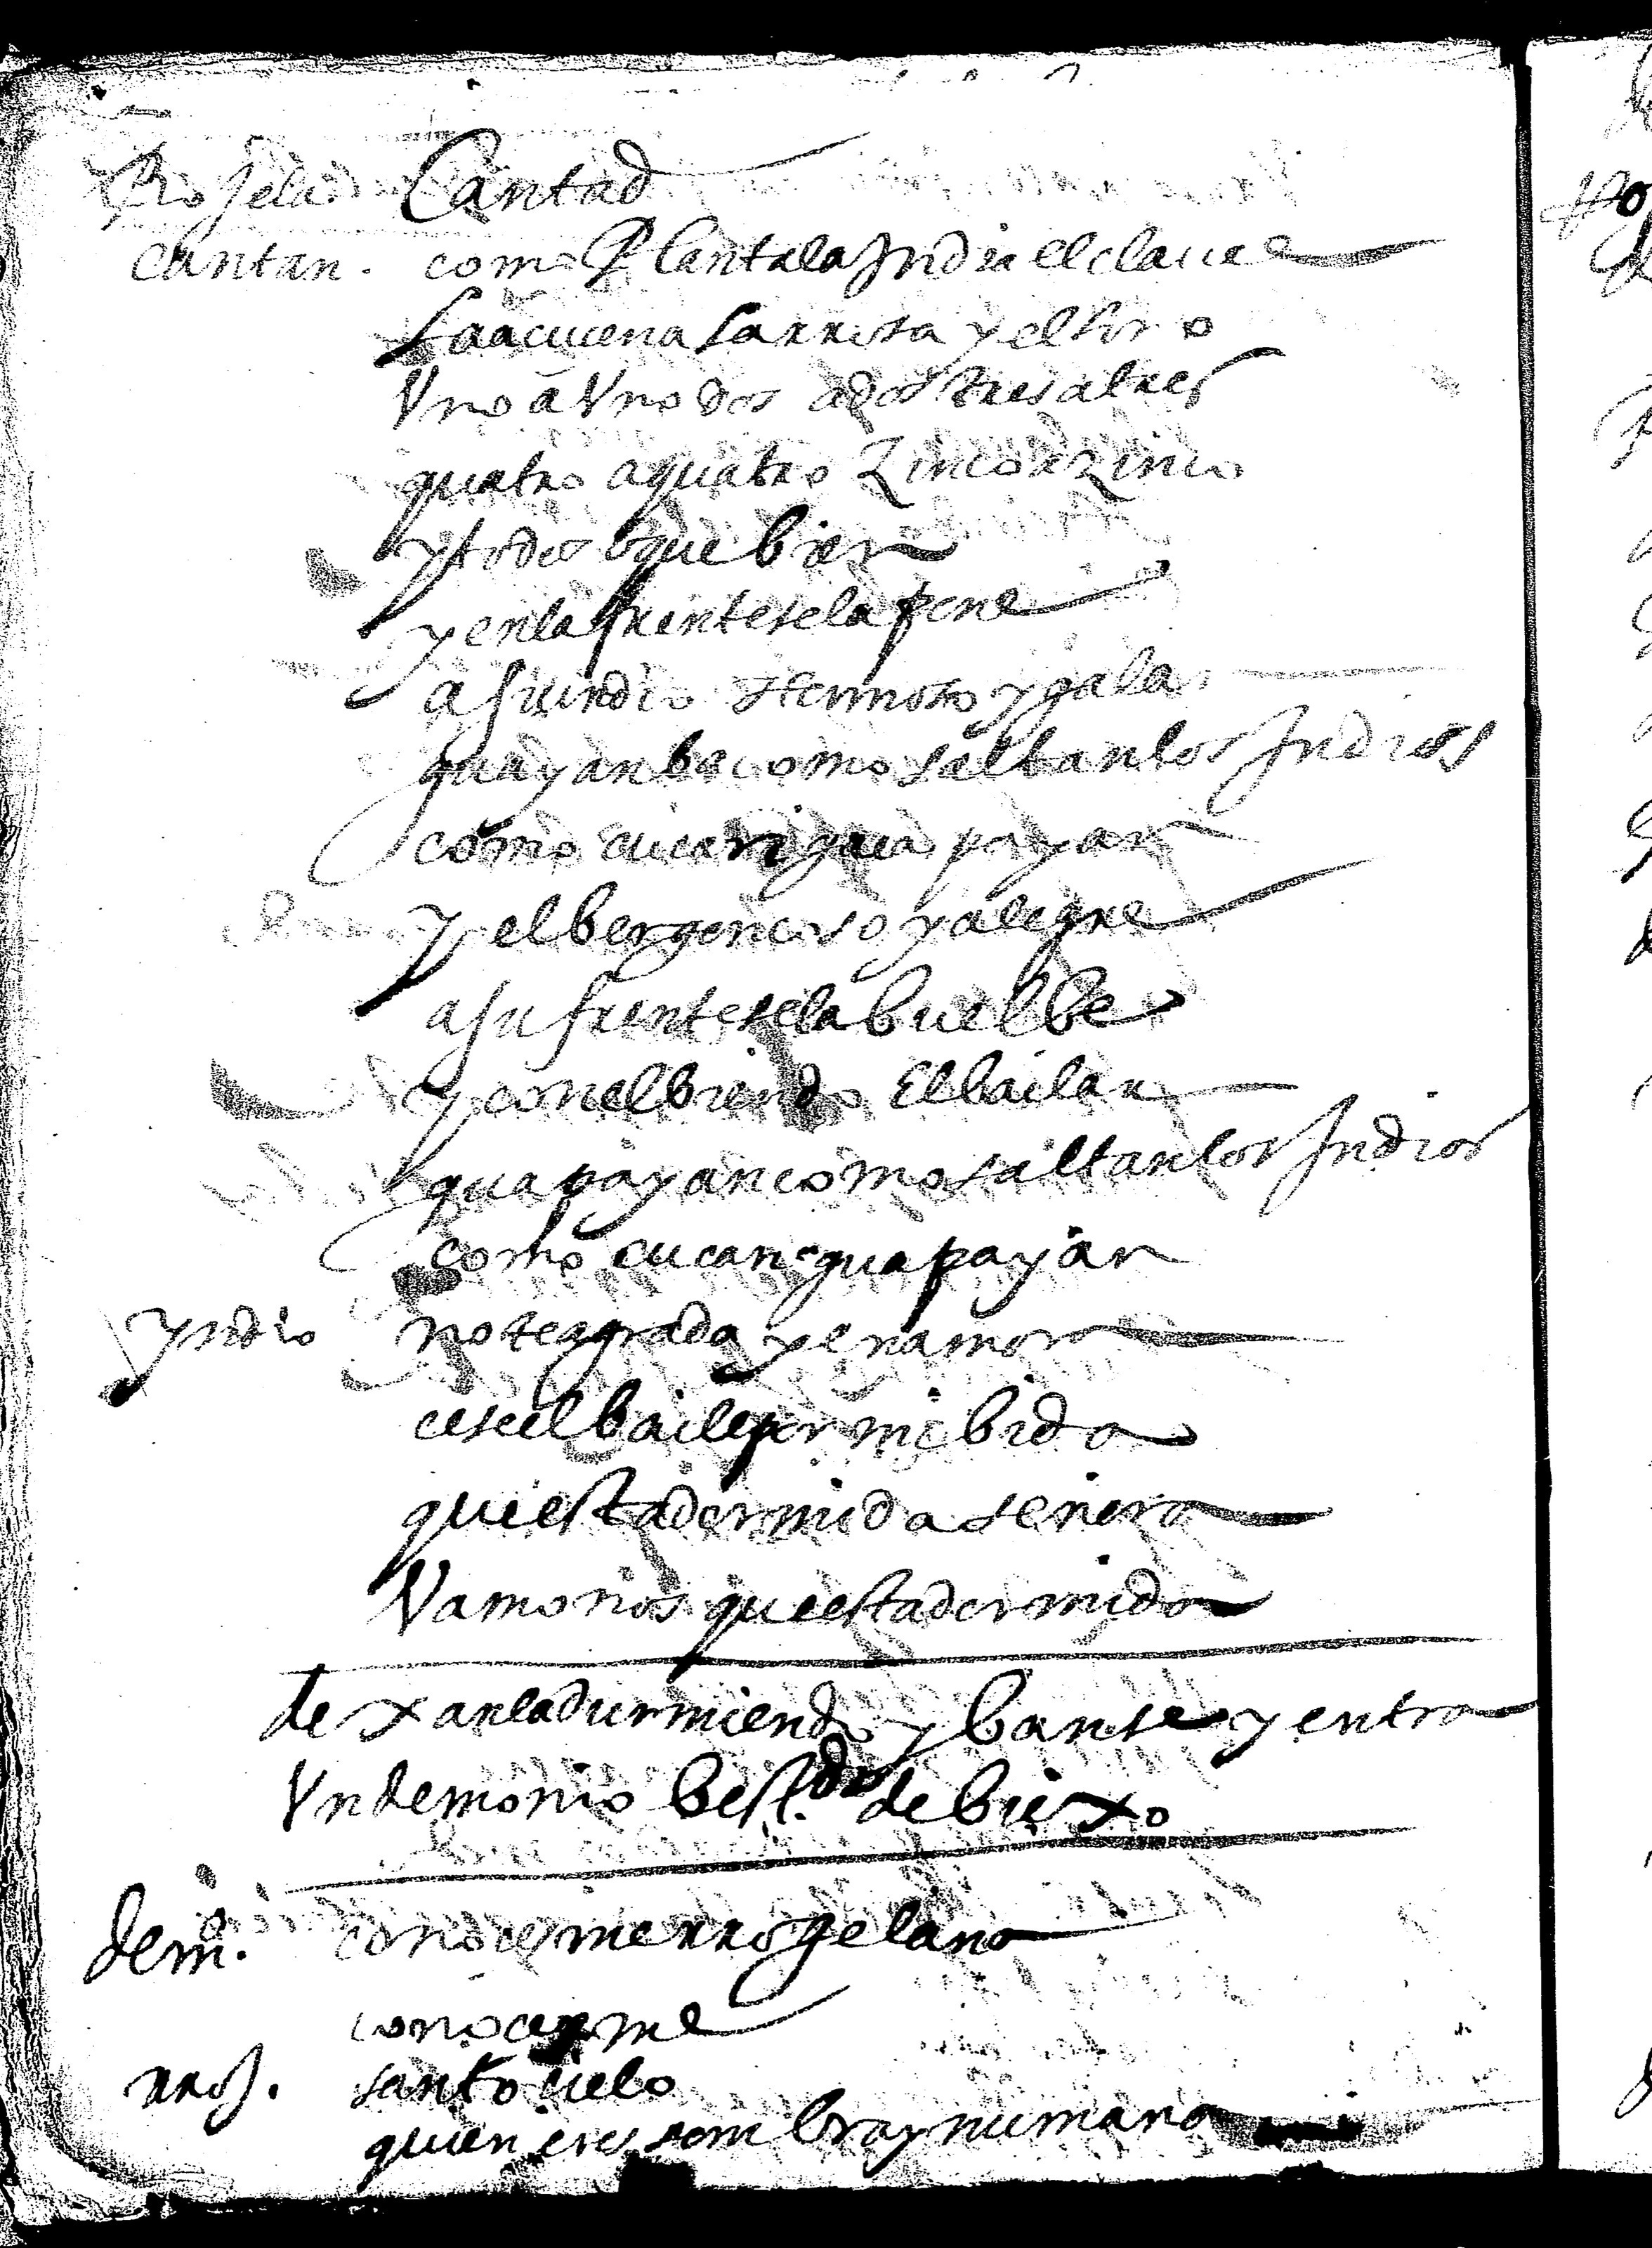 Rojela Cantad
cantan. como Plantala Jndia el claue
la acucena la rrosa y el lirio
Vno a Vno dos a dos tres a tres
quatro a quatro Zinco a Zinco
y todos que bien
y en la frente se la pone
a su indio hermoso y gala
guayanbe como saltan los Jndios
como cucan guapayan
y el bergonoso y alegre
a su frente se la buelbe
y con el biendo El bailar
guapayan como saltan los Jndios
como cucan guapayan
yndio no te agrada y enamora
cese el baile por mi bida
quiesta dormida señora
Vamonos que esta dormida
dexanla durmiendo y banse y entra
Vn demonio bestdo de biexo
demo. conocesme rrogelana
conocesme
rroj. santo cielo
quien eres sombra ynumana